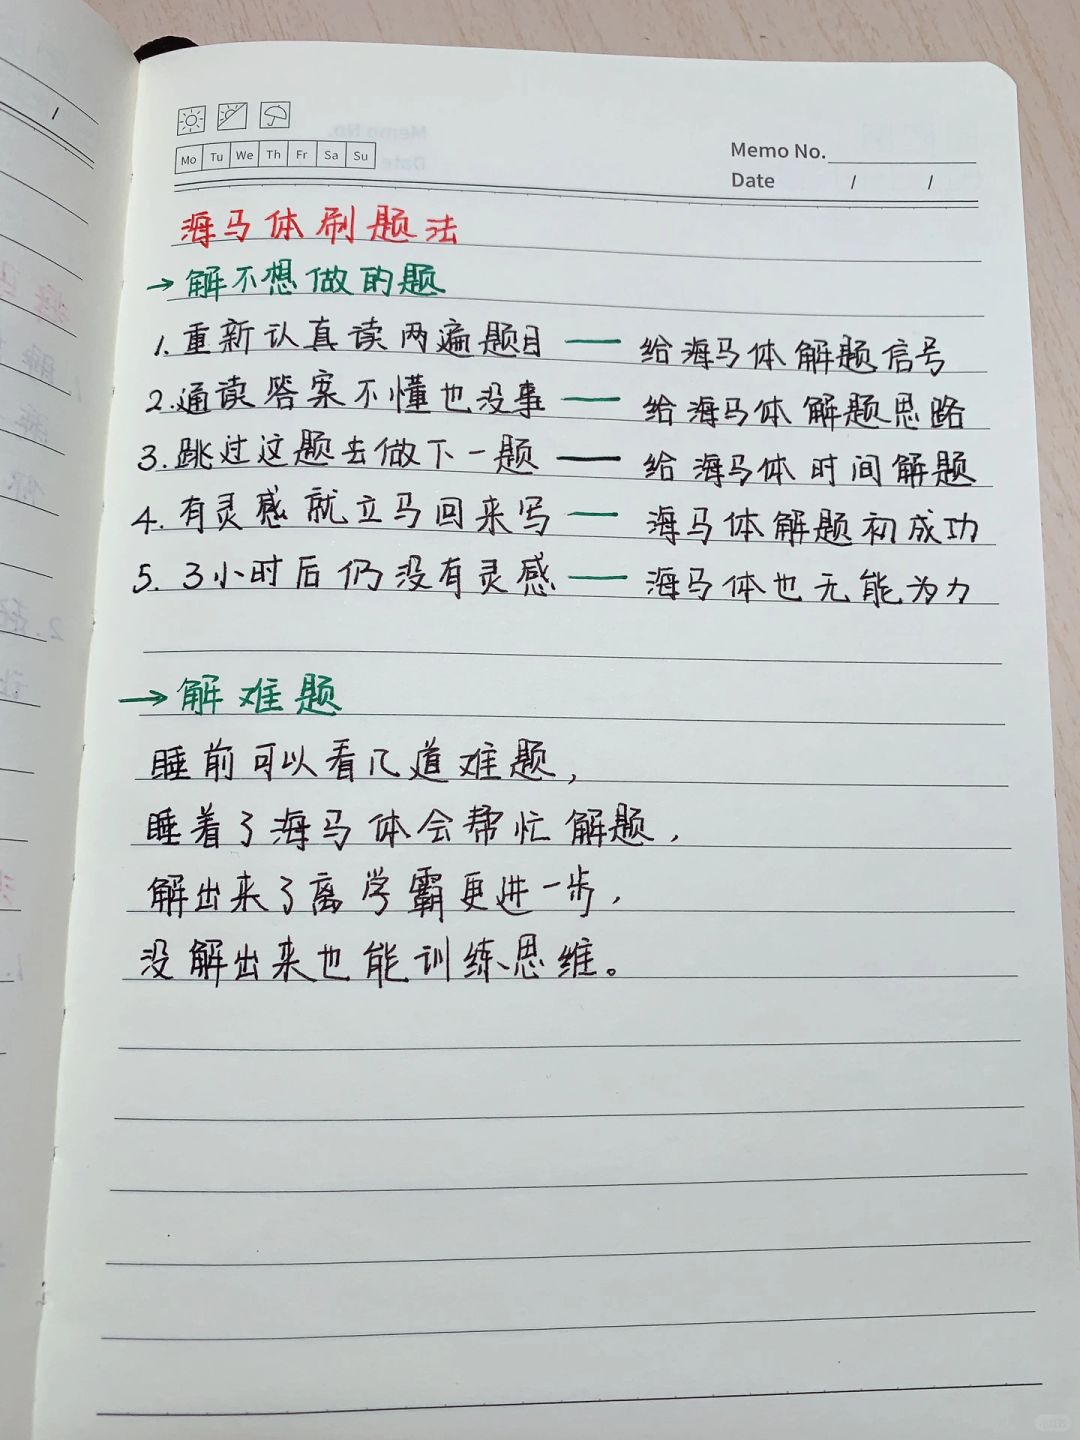 Mo Tu We Th Fr Sa Su
Memo No.
Date / /
海马体刷题法
→解不想做的题
1.重新认真读两遍题目——给海马体解题信号
2.通读答案不懂也没事——给海马体解题思路
3.跳过这题去做下一题——给海马体时间解题
4.有灵感就立马回来写——海马体解题初成功
5.3小时后仍没有灵感——海马体也无能为力
→解难题
睡前可以看几道难题，
睡着了海马体会帮忙解题，
解出来了离学霸更进一步，
没解出来也能训练思维。